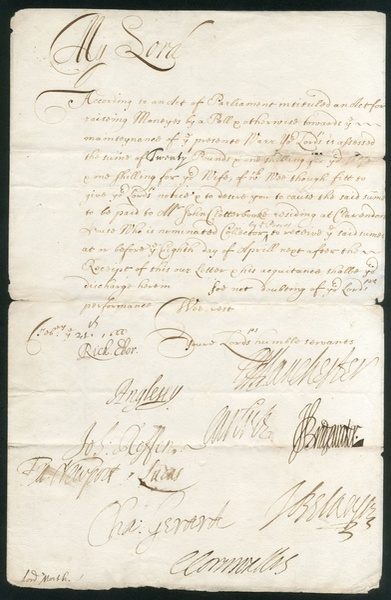 My Lord
According to an Act of Parliament intituled an Act for
raising Moneyes by a Poll & otherwise towards ye
maintenance of ye present Warr Yor Lordsp is assessed
the sume of Twenty Pounds & one shilling for yor selfe
& one shilling for yor Wife, of wch Wee though fitt to
give yor Lordsp notice & to desire you to cause the said sume
to be paid to Mr John Clotterbooke residing at Clarendon
house Who is nominated Collector to receive ye said sume
at or before ye Eighth day of Aprill next after the
Receipt of this our Letter & his acquitance shalbe yor
discharge herein Soe not doubting of yor Lordsps
performance Wee rest
ye 21th 1666
Yours Lordsps humble servants
Rich: Ebor.
Manchester
Anglesey
Carlisle
J Bridgewater
Joh: Roffen
Fr Newport Lucas
Cha: Gerard
J Belasyse
Cornwallis
Lord North.